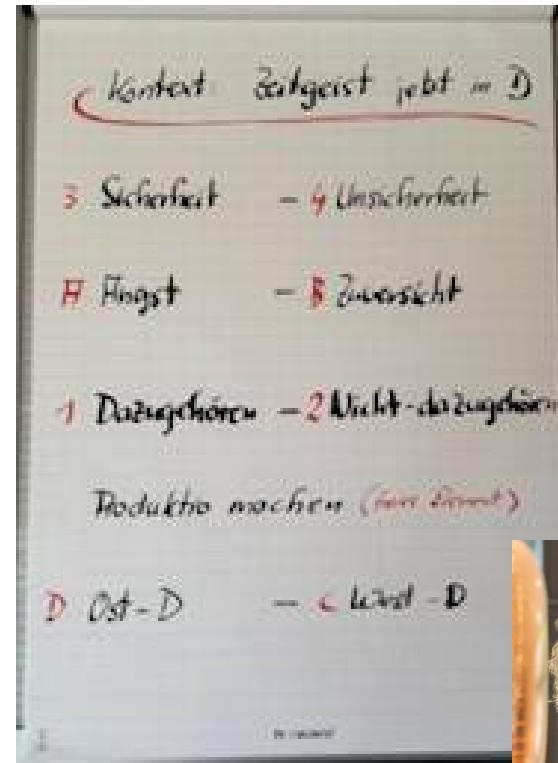 Kontext: Zeitgeist jetzt in D
3 Sicherheit - 4 Unsicherheit
A Angst - B Zuversicht
1 Dazugehören - 2 Nicht-dazugehören
Produktiv machen
D Ost-D - C West-D